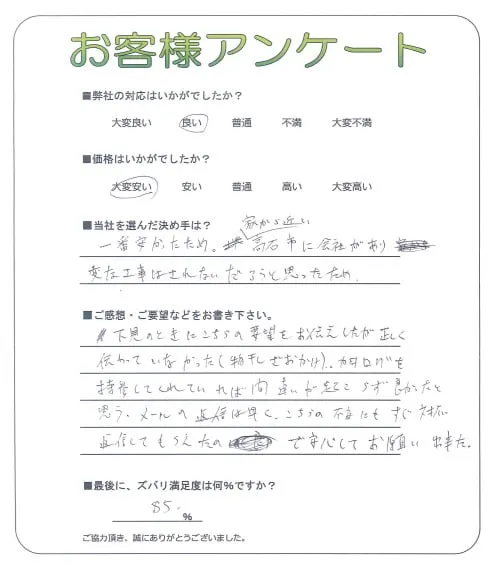 お客様アンケート
■弊社の対応はいかがでしたか？
大変良い 良い 普通 不満 大変不満
■価格はいかがでしたか？
大変安い 安い 普通 高い 大変高い
■当社を選んだ決め手は？
家から近い
一番安かったため。高石市に会社があり
変な工事はされないだろうと思ったため。
■ご感想・ご要望などをお書き下さい。
下見のときにこちらの要望をお伝えしたが正しく
伝わっていなかった(物干しざおかけ)。カタログを
持参してくれていれば間違いが起こらず良かったと
思う。メールの返信は早く、こちらの不安にもすぐ対応
返信してもらえたので安心してお願い出来た。
■最後に、ズバリ満足度は何％ですか？
85.
%
ご協力頂き、誠にありがとうございました。